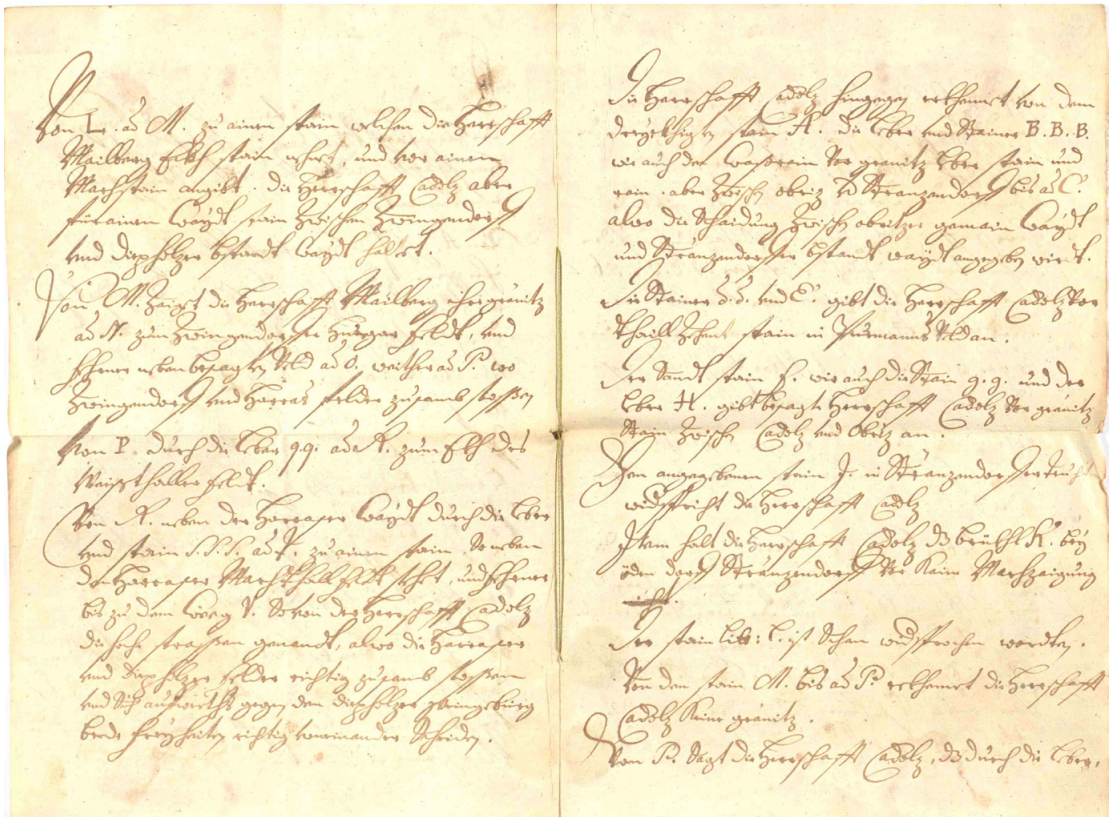 Von L. ad M. zu ainen stain welchen die Herrschafft
Mailberg Ekh stain nehnet, und vor ainen
Marchstain angibt. die Herrschafft Cadolz aber
für ainen Waydt stain zwischen Zwingendorff
vnd Diepholzer bstandt Waydt haltet.
Von M. zaiget die Herrschafft Mailberg ihre gränitz
ad N. zum Zwingendorffer feldt, vnd
fehrner neben besagten Veld ad O. weither ad P. wo
Zwingendorff vnd Harras felder zusamb stossen
Von P. durch die Leber q.q. ad R. zum Ekh des
Weissthaller feldt.
Von R. neben der Harrasser Waydt durch die Leber
vnd stain S.S.S. ad T. zu ainem stain. So neben
den Harrasser Marchthall stehet, und fehrner
bis zu dem Weeg V. So von der Herrschafft Cadolz
die hoche strassen genandt, alwo die Harrasser
vnd Diepholzer felder richtig zusamb stossen
vnd Sich aufwerths gegen den Diepholzer
bede freyheiten richtig voneinander Scheiden.
Die Herrschafft Cadolz hingegen erkhennet von dem
dreyekhigten stain A. die Leber vnd Stainer B.B.B.
wie auch den Wassrain vor gränitz Leber stain und
rain. aber zwischen obriz vnd Stränzendorff bis ad C.
alwo die Schaidung zwischen obritzer gemain Waydt
und Stränzendorffer bstandt waydt angegeben wirdt.
Die Stainer d.d. vnd E. gibt die Herrschafft Cadolz vor
Thaill Zehent stain in Veld an.
Der Sandt stain f. wie auch die Stain g.g. und der
Leber H. gibt besagte Herrschafft Cadolz vor gränitz
Stain zwischen Cadolz vnd Obriz an.
Den angegebenen stain J. in Stränzendorffer
widerspricht die Herrschafft Cadolz
Item halt die Herrschafft Cadolz dz brüthl K. bey
öden dorff Stränzendorff vor kaine Marchzaigung
Der stain Litt: L. ist Schon widersprochen worden.
Von den stain M. bis ad P. erkhennet die Herrschafft
Cadolz kaine gränitz.
Von P. Sagt die Herrschafft Cadolz, dz durch die Leber,